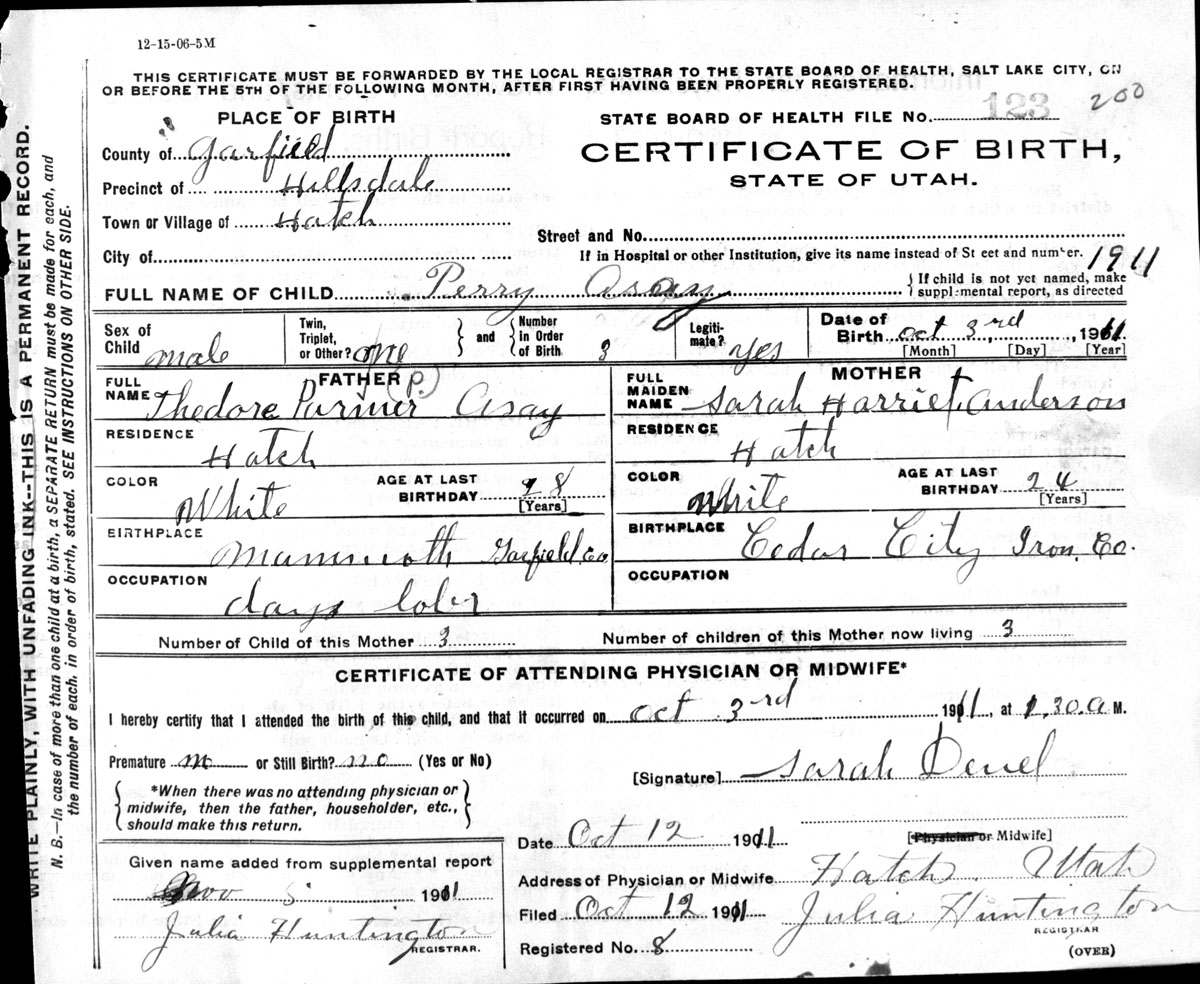 12-15-06-5M
THIS CERTIFICATE MUST BE FORWARDED BY THE LOCAL REGISTRAR TO THE STATE BOARD OF HEALTH, SALT LAKE CITY, ON
OR BEFORE THE 5TH OF THE FOLLOWING MONTH, AFTER FIRST HAVING BEEN PROPERLY REGISTERED.
200
PLACE OF BIRTH
STATE BOARD OF HEALTH FILE No. 123
County of Garfield
CERTIFICATE OF BIRTH,
STATE OF UTAH.
Precinct of Hillsdale
Town or Village of Hatch
Street and No.
City of
If in Hospital or other Institution, give its name instead of St eet and number.
1911
FULL NAME OF CHILD Perry Asay
{ If child is not yet named, make
supplemental report, as directed
Sex of Child male
Twin, Triplet, or Other? one } and { Number in Order of Birth 3
Legiti-mate? yes
Date of Birth Oct 3rd, 1911
[Month] [Day] [Year]
FATHER (P.)
FULL NAME Thedore Parmer Asay
MOTHER
FULL MAIDEN NAME Sarah Harriet Anderson
RESIDENCE Hatch
RESIDENCE Hatch
COLOR White
AGE AT LAST BIRTHDAY 28
[Years]
COLOR White
AGE AT LAST BIRTHDAY 24
[Years]
BIRTHPLACE Mammoth Garfield, Co
BIRTHPLACE Cedar City Iron, Co.
OCCUPATION days lobr
OCCUPATION
Number of Child of this Mother 3
Number of children of this Mother now living 3
CERTIFICATE OF ATTENDING PHYSICIAN OR MIDWIFE*
I hereby certify that I attended the birth of this child, and that it occurred on Oct 3rd 1911, at 1.30.a M.
Premature no or Still Birth? no (Yes or No)
[Signature] Sarah Deuel
{ *When there was no attending physician or
midwife, then the father, householder, etc.,
should make this return. }
Date Oct 12 1911
[Physician or Midwife]
Given name added from supplemental report
Nov 1911
Julia Huntington
REGISTRAR.
Address of Physician or Midwife Hatch Utah
Filed Oct 12 1911 Julia Huntington
REGISTRAR
Registered No. 8
(OVER)
WRITE PLAINLY, WITH UNFADING INK--THIS IS A PERMANENT RECORD.
N. B.—In case of more than one child at a birth, a SEPARATE RETURN must be made for each, and
the number of each. in order of birth, stated. SEE INSTRUCTIONS ON OTHER SIDE.